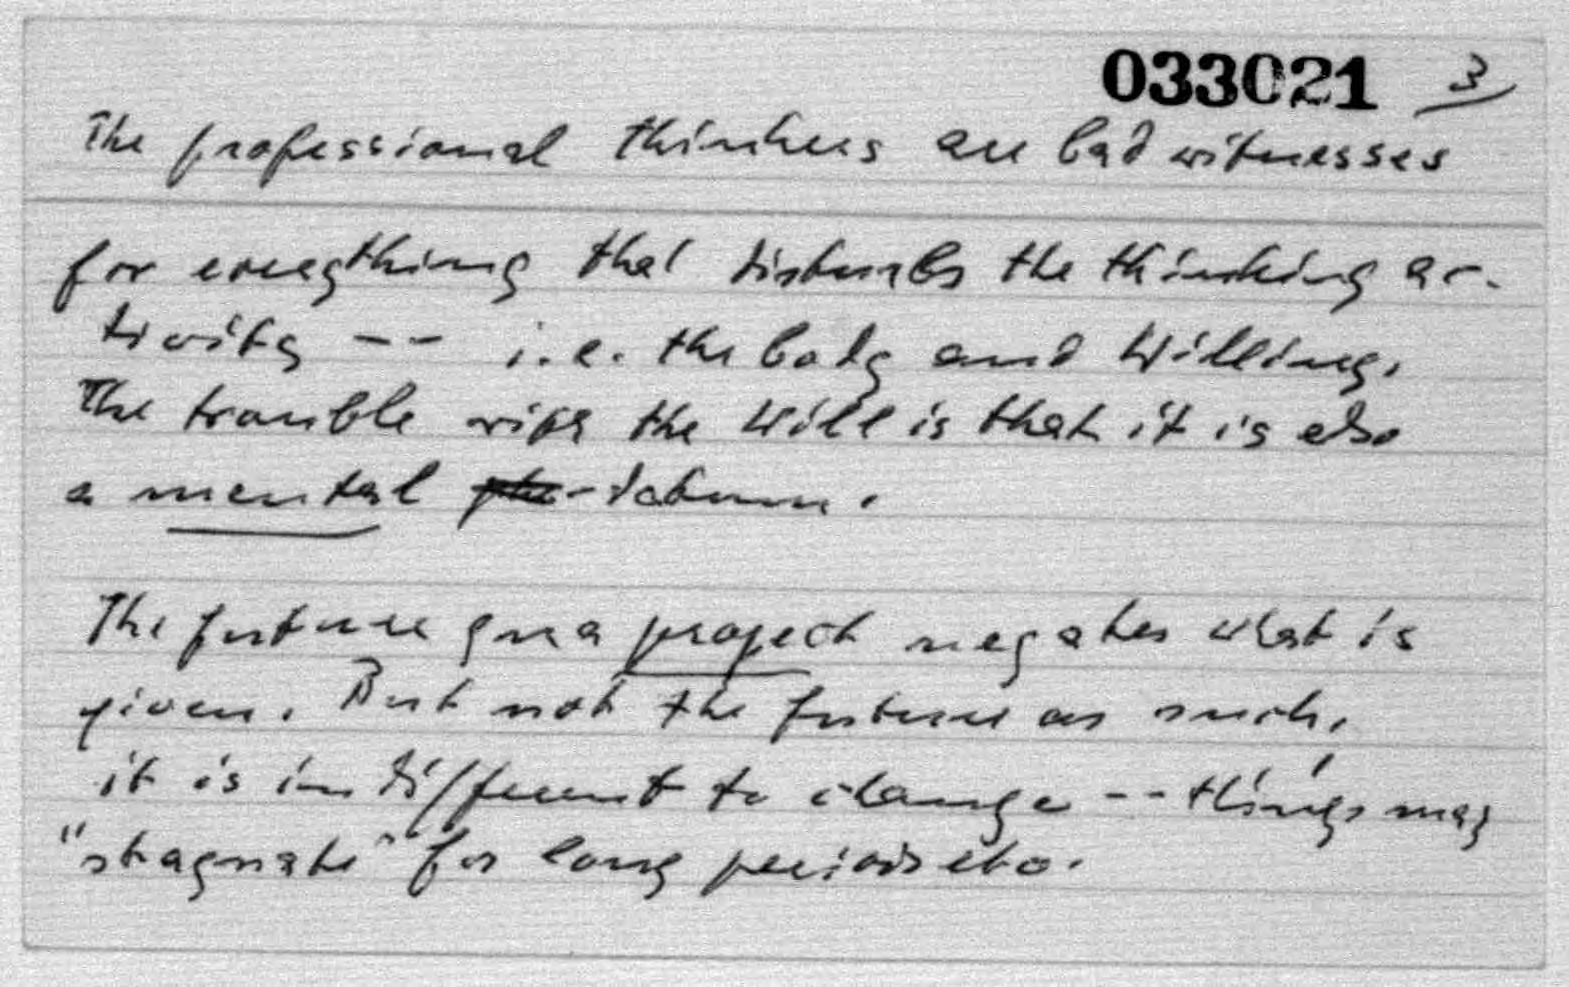 033021 3
The professional thinkers are bad witnesses
for everything that disturbs the thinking ac-
tivity -- i.e. the body and Willing.
The trouble with the Will is that it is also
a mental datum.
The future qua project negates what is
given. But not the future as such,
it is indifferent to change -- things may
"stagnate" for long periods etc.